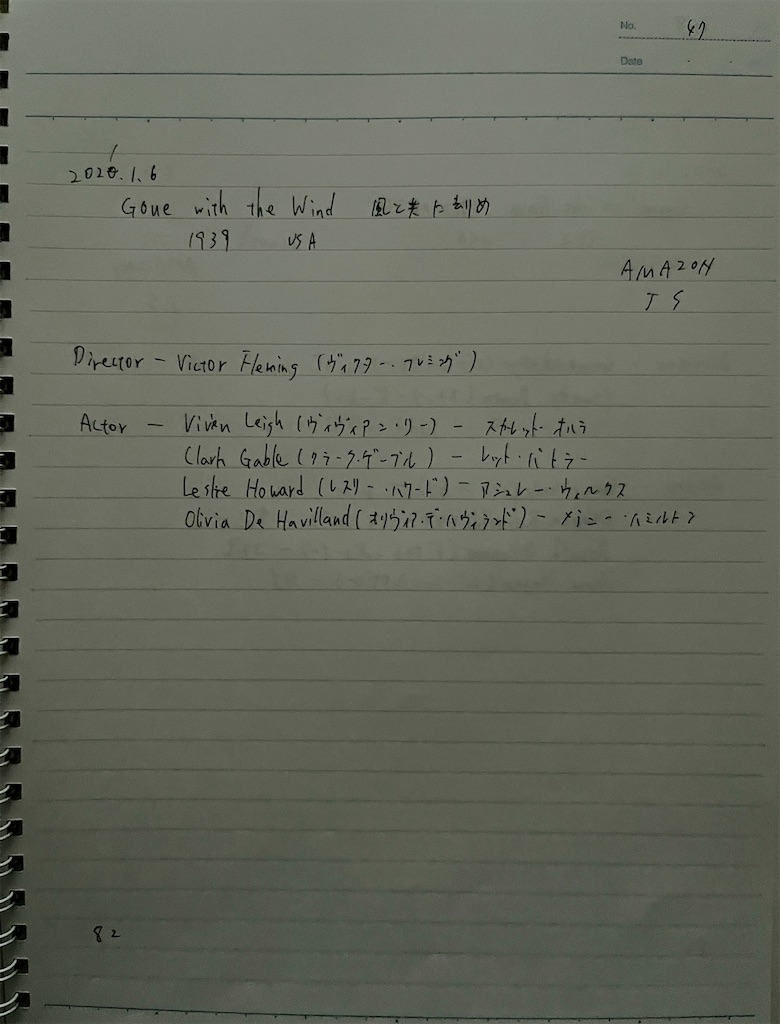 No. 47
Date
1
2020.1.6
Gone with the Wind 風と共に刻め
1939 USA
AMAZON
J S
Director - Victor Fleming (ヴィクター・フレミング)
Actor - Vivien Leigh (ヴィヴィアン・リー) - スカーレット・オハラ
Clark Gable (クラーク・ゲーブル) - レット・バトラー
Leslie Howard (レスリー・ハワード) - アシュレー・ウィルクス
Olivia De Havilland (オリヴィア・デ・ハヴィランド) - メラニー・ハミルトン
82